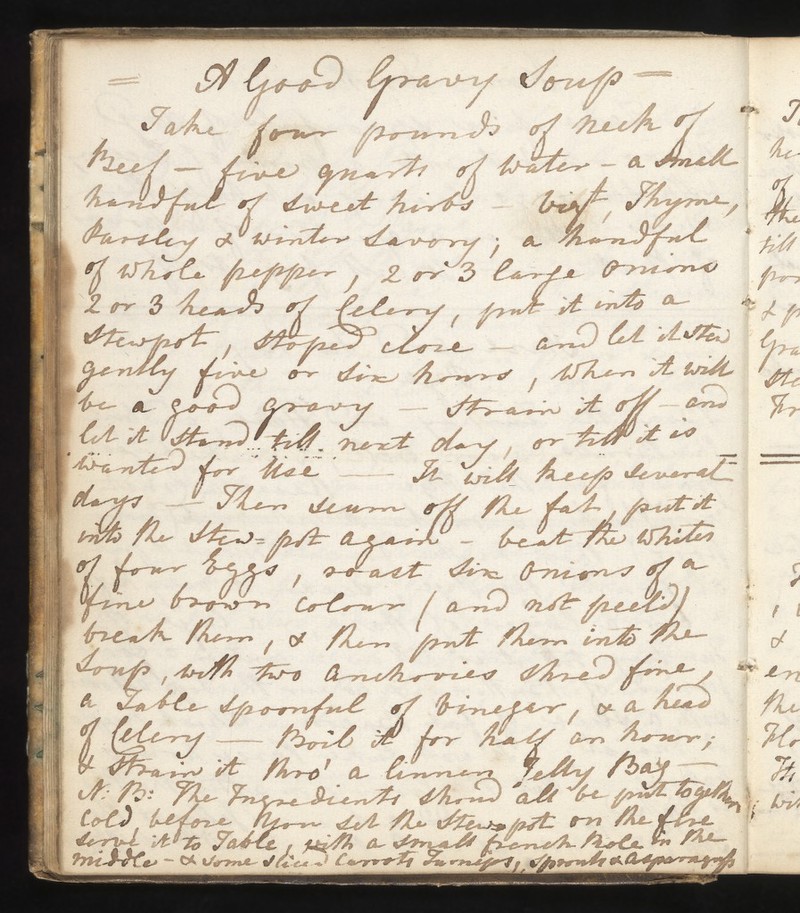 = A Good Gravy Soup =
Take four pounds of neck of
Beef - five quarts of water - a small
handful of sweet hirbs - vizt, Thyme,
Parsley & winter Savory; a handful
of whole pepper, 2 or 3 large Onions
2 or 3 heads of Celery, put it into a
Stewpot, stoped close - and let it stew
gently five or six hours, when it will
be a good gravy - Strain it off - and
let it Stand till next day, or till it is
wanted for Use — It will keep several
days — Then scum off the fat, put it
into the Stew=pot again - beat the whites
of four Eggs, roast six Onions of a
fine brown colour (and not peel'd)
break them, & then put them into the
Soup, with two anchovies shred fine,
a Table spoonful of Vinegar, & a head
of Celery — Boil it for half an hour;
& Strain it thro' a linnen Jelly Bag —
N: B: The Ingredients shoud all be put together
cold before you set the Stew-pot on the fire
serve it to Table, with a small french Role in the
middle - & some sliced Carrots Turneps, sprouts & asparagass